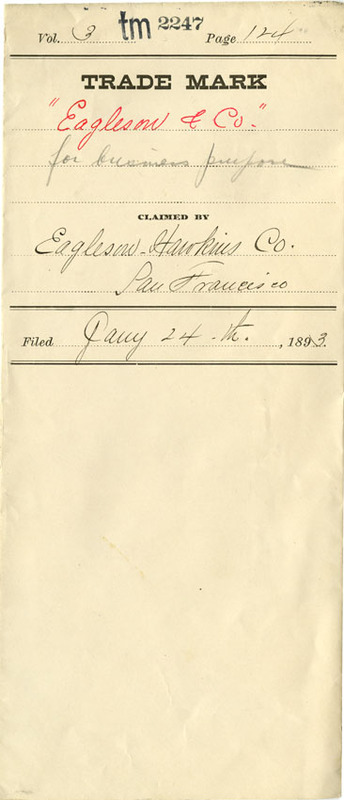 Vol. 3 tm 2247 Page 124
TRADE MARK
"Eagleson & Co."
for business purpose
CLAIMED BY
Eagleson-Hawkins Co.
San Francisco
Filed Jany 24-th. , 1893.